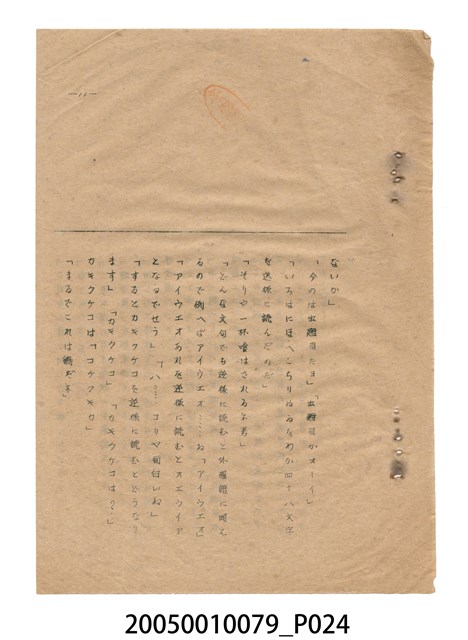 —11—
ないか」
「今のは出題目だヨ」「出題目かオーイ」
「いろはにほへとちりぬるをわか四十八文字
を逆様に読んだのだ」
「そりや一杯喰はされるネ君」
「どんな文句でも逆様に読むと外国語に聞え
るので例へばアイウエオ……ね「アイウエオ」
「アイウエオあれを逆様に読むとオエウイア
となるでせう」「ハ……コリや面白いね」
「するとカキクケコを逆様に読むとどうなり
ます」「カキクケコ」「カキクケコはりゝ…」
カキクケコは「コケクキカ」
「まるでこれは鶏だネ」
20050010079_P024